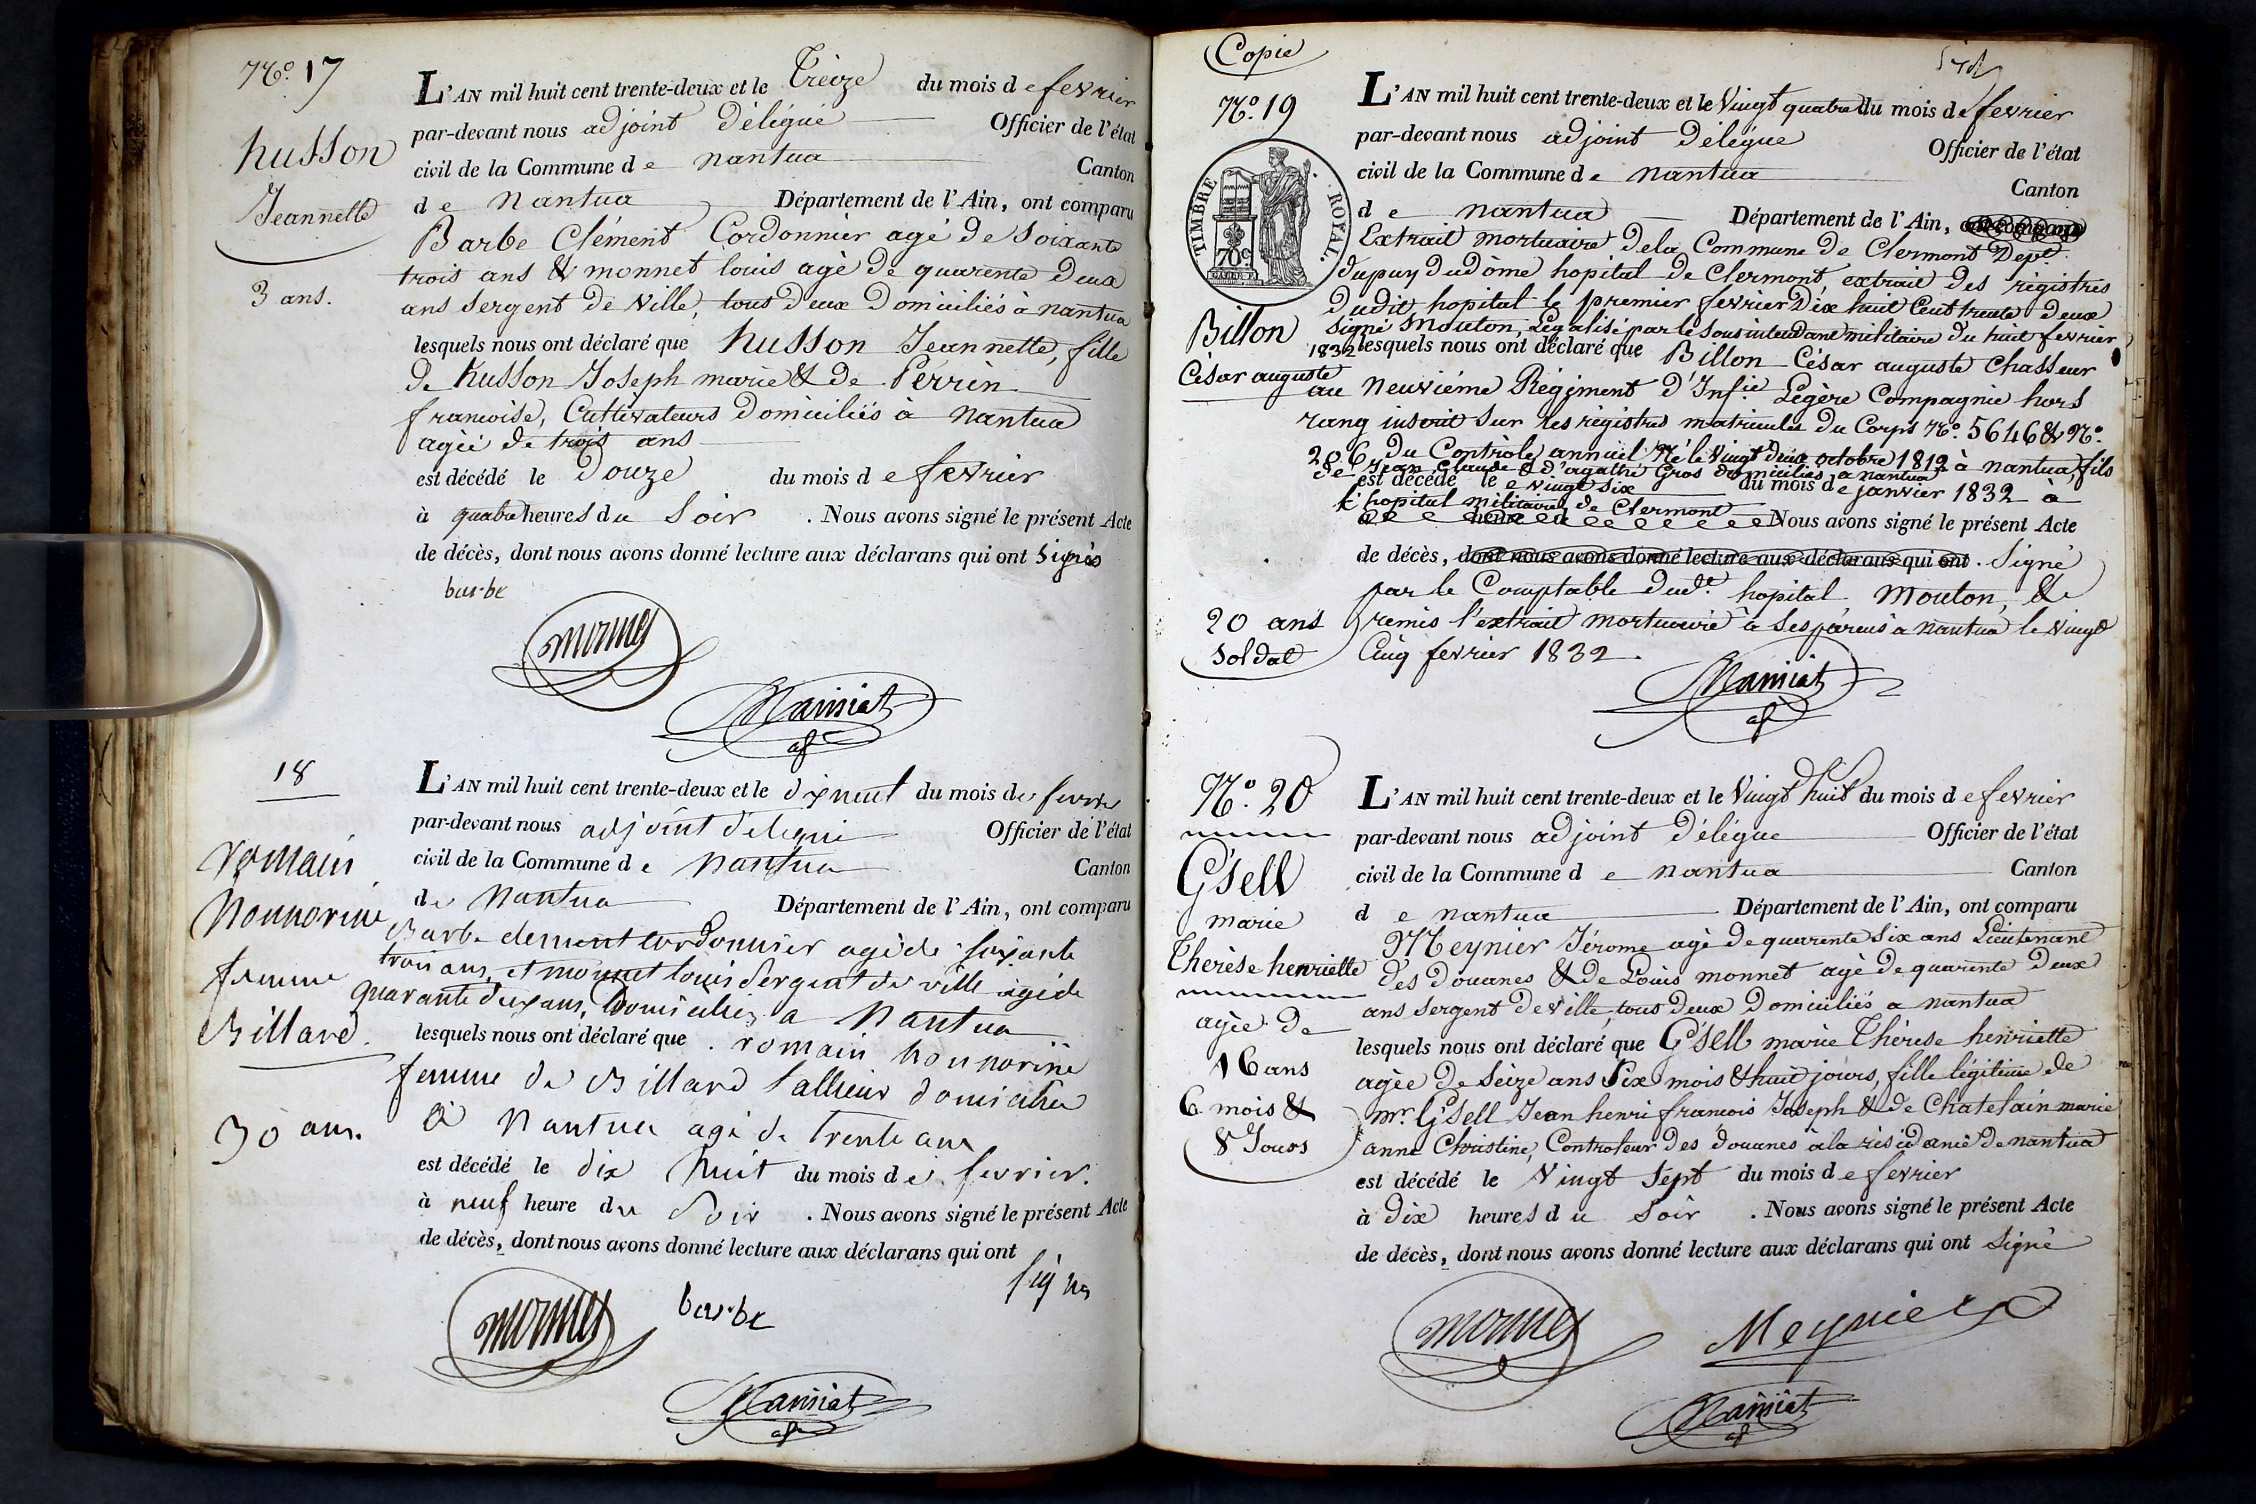 N.° 17
husson
Jeannette
3 ans.
L'AN mil huit cent trente-deux et le Treize du mois de fevrier
par-devant nous adjoint Délégué Officier de l'état
civil de la Commune de nantua Canton
de Nantua Département de l'Ain, ont comparu
Barbe Clément Cordonnier agé de Soixante
trois ans & monnet louis agé de quarente deux
ans Sergent de Ville, tous deux Domiciliés à nantua
lesquels nous ont déclaré que husson Jeannette, fille
de husson Joseph marie & de Perrin
francoise, Cultivateurs Domiciliés à nantua
agée de trois ans
est décédé le Douze du mois de fevrier
à quatre heures du Soir . Nous avons signé le présent Acte
de décès, dont nous avons donné lecture aux déclarans qui ont Signés
barbe
monnet
18
romain
Honnorine
femme
Billard.
30 ans.
L'AN mil huit cent trente-deux et le dix neuf du mois de fevrier
par-devant nous adjoint délégué Officier de l'état
civil de la Commune de Nantua Canton
de Nantua Département de l'Ain, ont comparu
Barbe clement cordonnier agé de soixante
trois ans, et monnet louis Sergent de ville agé de
quarante deux ans, Domiciliés a Nantua
lesquels nous ont déclaré que romain honnorine
femme de Billard tallieur domiciliée
à Nantua agé de trente ans
est décédé le dix huit du mois de fevrier.
à neuf heure du Soir . Nous avons signé le présent Acte
de décès, dont nous avons donné lecture aux déclarans qui ont
signés
monnet barbe
Copie
N.° 19
TIMBRE ROYAL.
70c.
Billon
César auguste
20 ans
Soldat
L'AN mil huit cent trente-deux et le Vingt quatre du mois de fevrier
par-devant nous adjoint Délégué Officier de l'état
civil de la Commune de nantua Canton
de nantua Département de l'Ain, ont comparu
Extrait mortuaire de la Commune de Clermont Dept.
du puy du dôme hopital de Clermont, extrait des régistres
dudit hopital le premier fevrier Dix huit Cent trente deux
Signé Mouton, Légalisé par le Sous intendant militaire du huit fevrier
1832 lesquels nous ont déclaré que Billon César auguste Chasseur
au Neuviéme Régiment d'Inf.ie Légère Compagnie hors
rang inscrit Sur les régistres matricules du Corps N.° 5646 & N.°
206 du Contrôle annuel Né le Vingt Deux octobre 1812 à nantua, fils
de Jean Claude & d'agathe Gros domiciliés a nantua
est décédé le vingt Six du mois de janvier 1832 à
l'hopital militaire de Clermont
à heure Nous avons signé le présent Acte
de décès, dont nous avons donné lecture aux déclarans qui ont . Signé
par le Comptable dud.t hopital Mouton, &
remis l'extrait mortuaire à Ses parens à nantua le Vingt
Cinq fevrier 1832.
N.° 20
G'sell
marie
Thérèse henriette
agée de
16 ans
6 mois &
8 Jours
L'AN mil huit cent trente-deux et le Vingt huit du mois de fevrier
par-devant nous adjoint Délégue Officier de l'état
civil de la Commune de nantua Canton
de nantua Département de l'Ain, ont comparu
Meynier Jérome agé de quarente Six ans Lieutenant
des Douanes & de Louis monnet agé de quarente Deux
ans Sergent de Ville, tous deux Domiciliés a nantua
lesquels nous ont déclaré que G'sell marie Thérèse henriette
agée de Seize ans Six mois & huit jours, fille légitime de
mr. G'sell Jean henri francois Joseph & de Chatelain marie
anne Christine, Controleur des Douanes à la résidence de nantua
est décédé le Vingt Sept du mois de fevrier
à Dix heures du Soir . Nous avons signé le présent Acte
de décès, dont nous avons donné lecture aux déclarans qui ont Signé
monnet Meynier